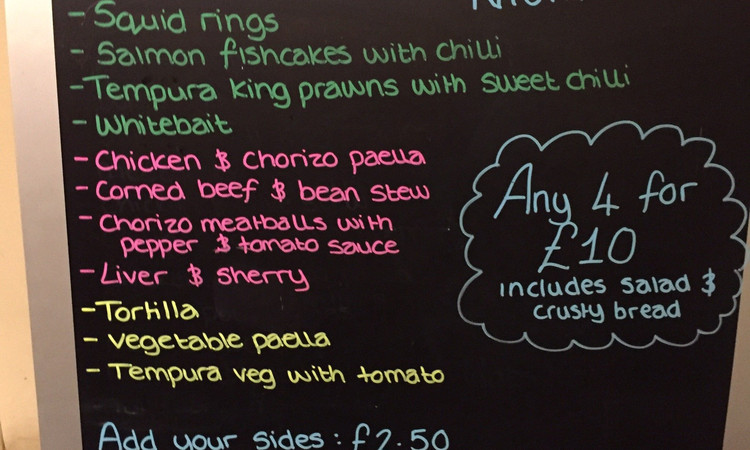 - Squid rings
- Salmon fishcakes with chilli
- Tempura king prawns with sweet chilli
- Whitebait
- Chicken & Chorizo paella
- Corned beef & bean stew
- Chorizo meatballs with
pepper & tomato sauce
- Liver & Sherry
- Tortilla
- Vegetable paella
- Tempura veg with tomato
Any 4 for
£10
includes salad &
crusty bread
Add your sides : £2.50